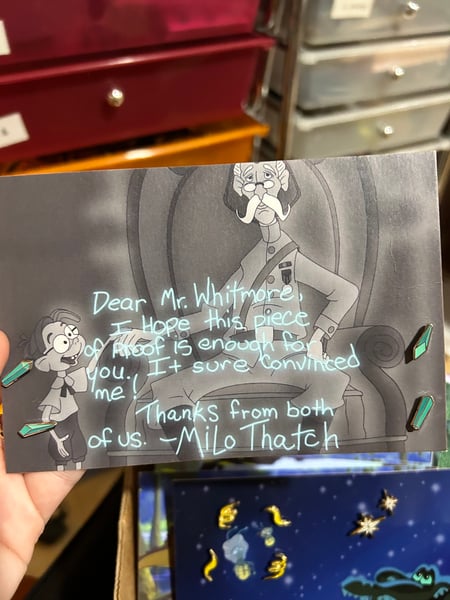 Dear Mr. Whitmore,
I Hope this piece
of Proof is enough for
you. It sure convinced
me!
Thanks from both
of us. -MiLo Thatch